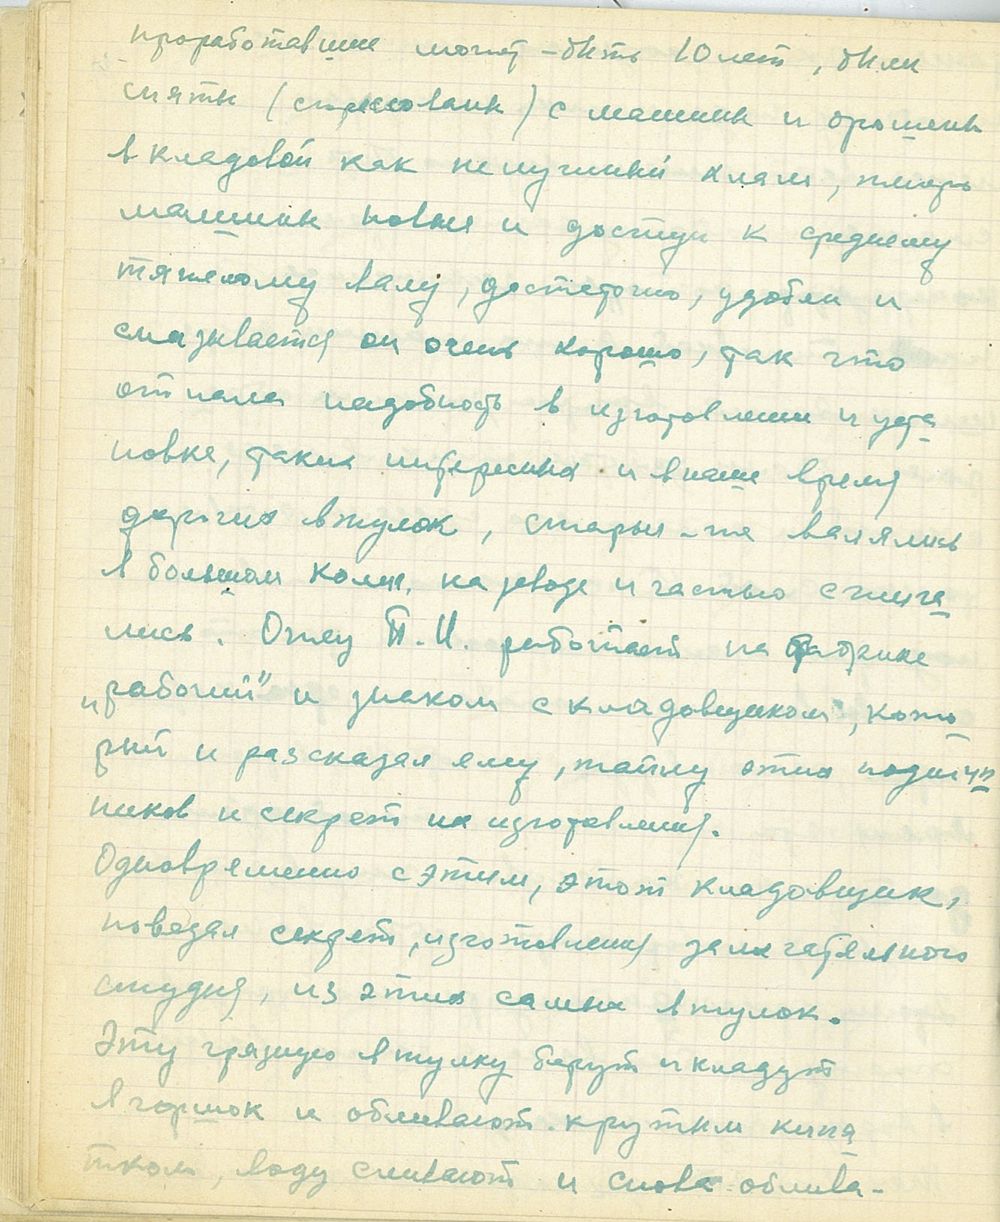 проработавшие может-быть 10 лет, были
сняты (списованы) с машины и брошены
в кладовой как ненужный хлам, теперь
машины новые и доступ к среднему
тяжелому валу, достаточно, удобен и
смазывается он очень хорошо, так что
отпала надобность в изготовлении и уста
новке, таких интересных и в наше время
дорогих втулок, старые-же валялись
в большом колич. на заводе и частью сжига
лись. Отец П.И. работает на фабрике
„рабочий" и знаком с кладовщиком", кото
рый и разсказал ему, тайну этих подшип
ников и секрет их изготовления.
Одновременно с этим, этот кладовщик,
поведал секрет, изготовления замечательного
студня, из этих самых втулок.
Эту грязную втулку берут и кладут
в горшок и обливают крутым кипя
тком, воду сливают и снова облива-